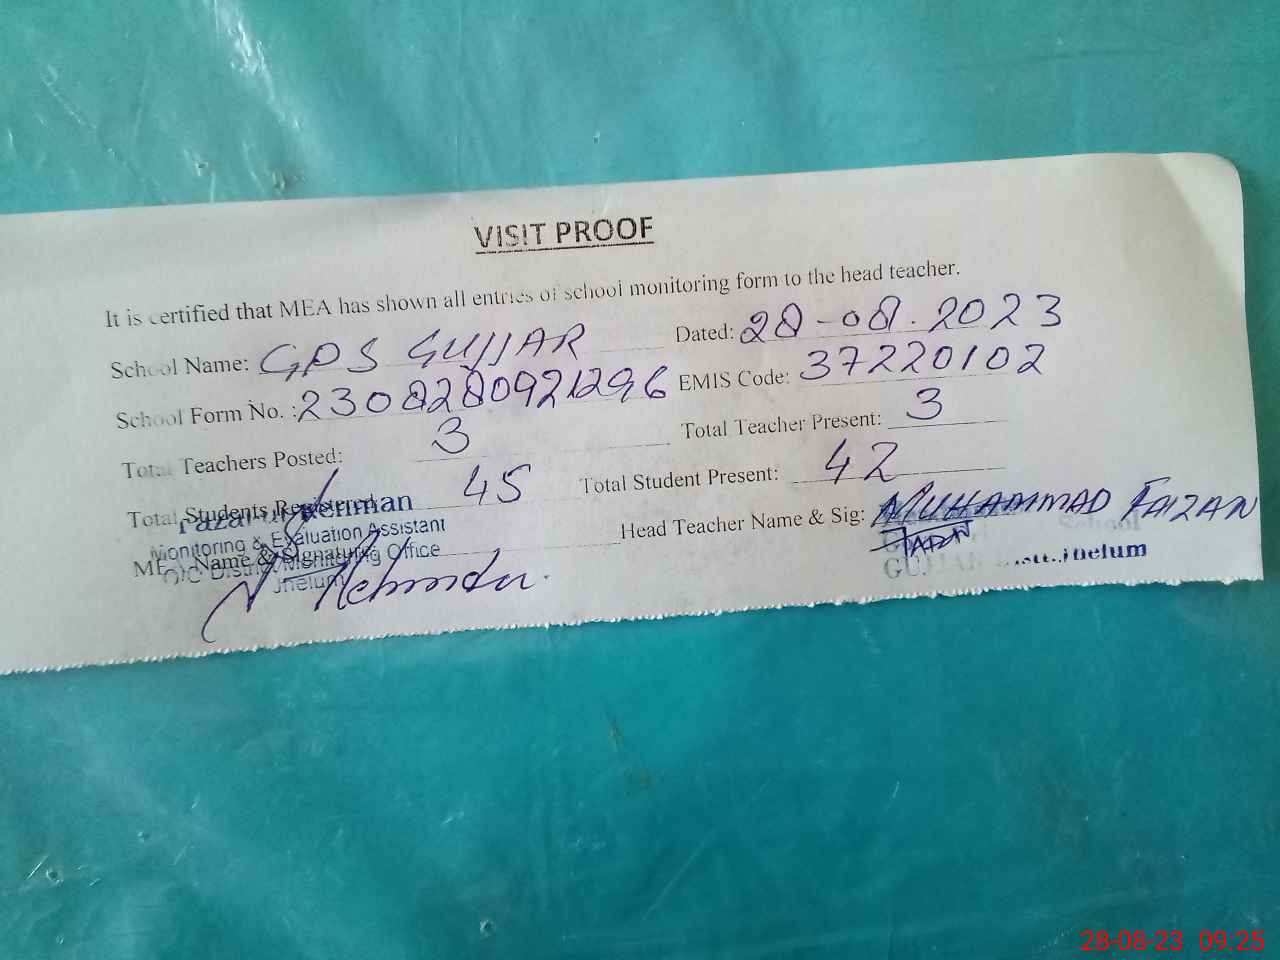 VISIT PROOF
It is certified that MEA has shown all entries of school monitoring form to the head teacher.
School Name: GPS GUJJAR Dated: 28-08.2023
School Form No. : 2308280921296 EMIS Code: 37220102
Total Teachers Posted: 3 Total Teacher Present: 3
Total Students Registered: 45 Total Student Present: 42
Fazal-ur-Rehman
Monitoring & Evaluation Assistant
O/O District Monitoring Office
Jhelum
MEA Name & Signature Head Teacher Name & Sig: MUHAMMAD FAIZAN
School
Jhelum
28-08-23 09:25